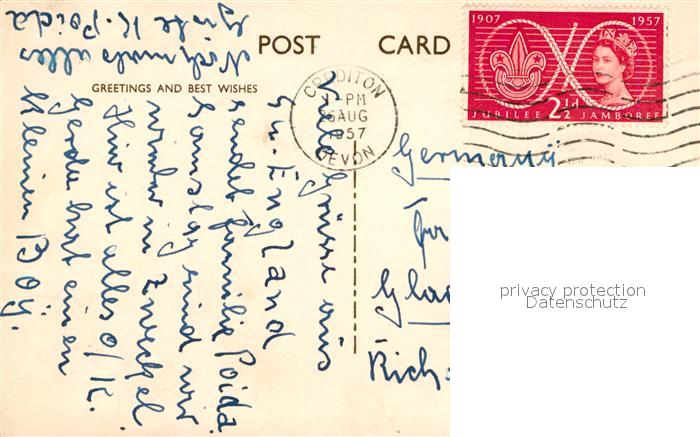 POST CARD
GREETINGS AND BEST WISHES
1907 1957
JUBILEE 2½d JAMBOREE
CREDITON
1-PM
26 AUG
1957
DEVON
Viele Grüsse aus
England
sendet Familie Poida
Samstag sind wir
wieder in
Hier ist alles o/K.
Gerda hat einen
kleinen Boy.
Nochmals alles
Gute K. Poida
Germany
Glad
Rich
privacy protection
Datenschutz